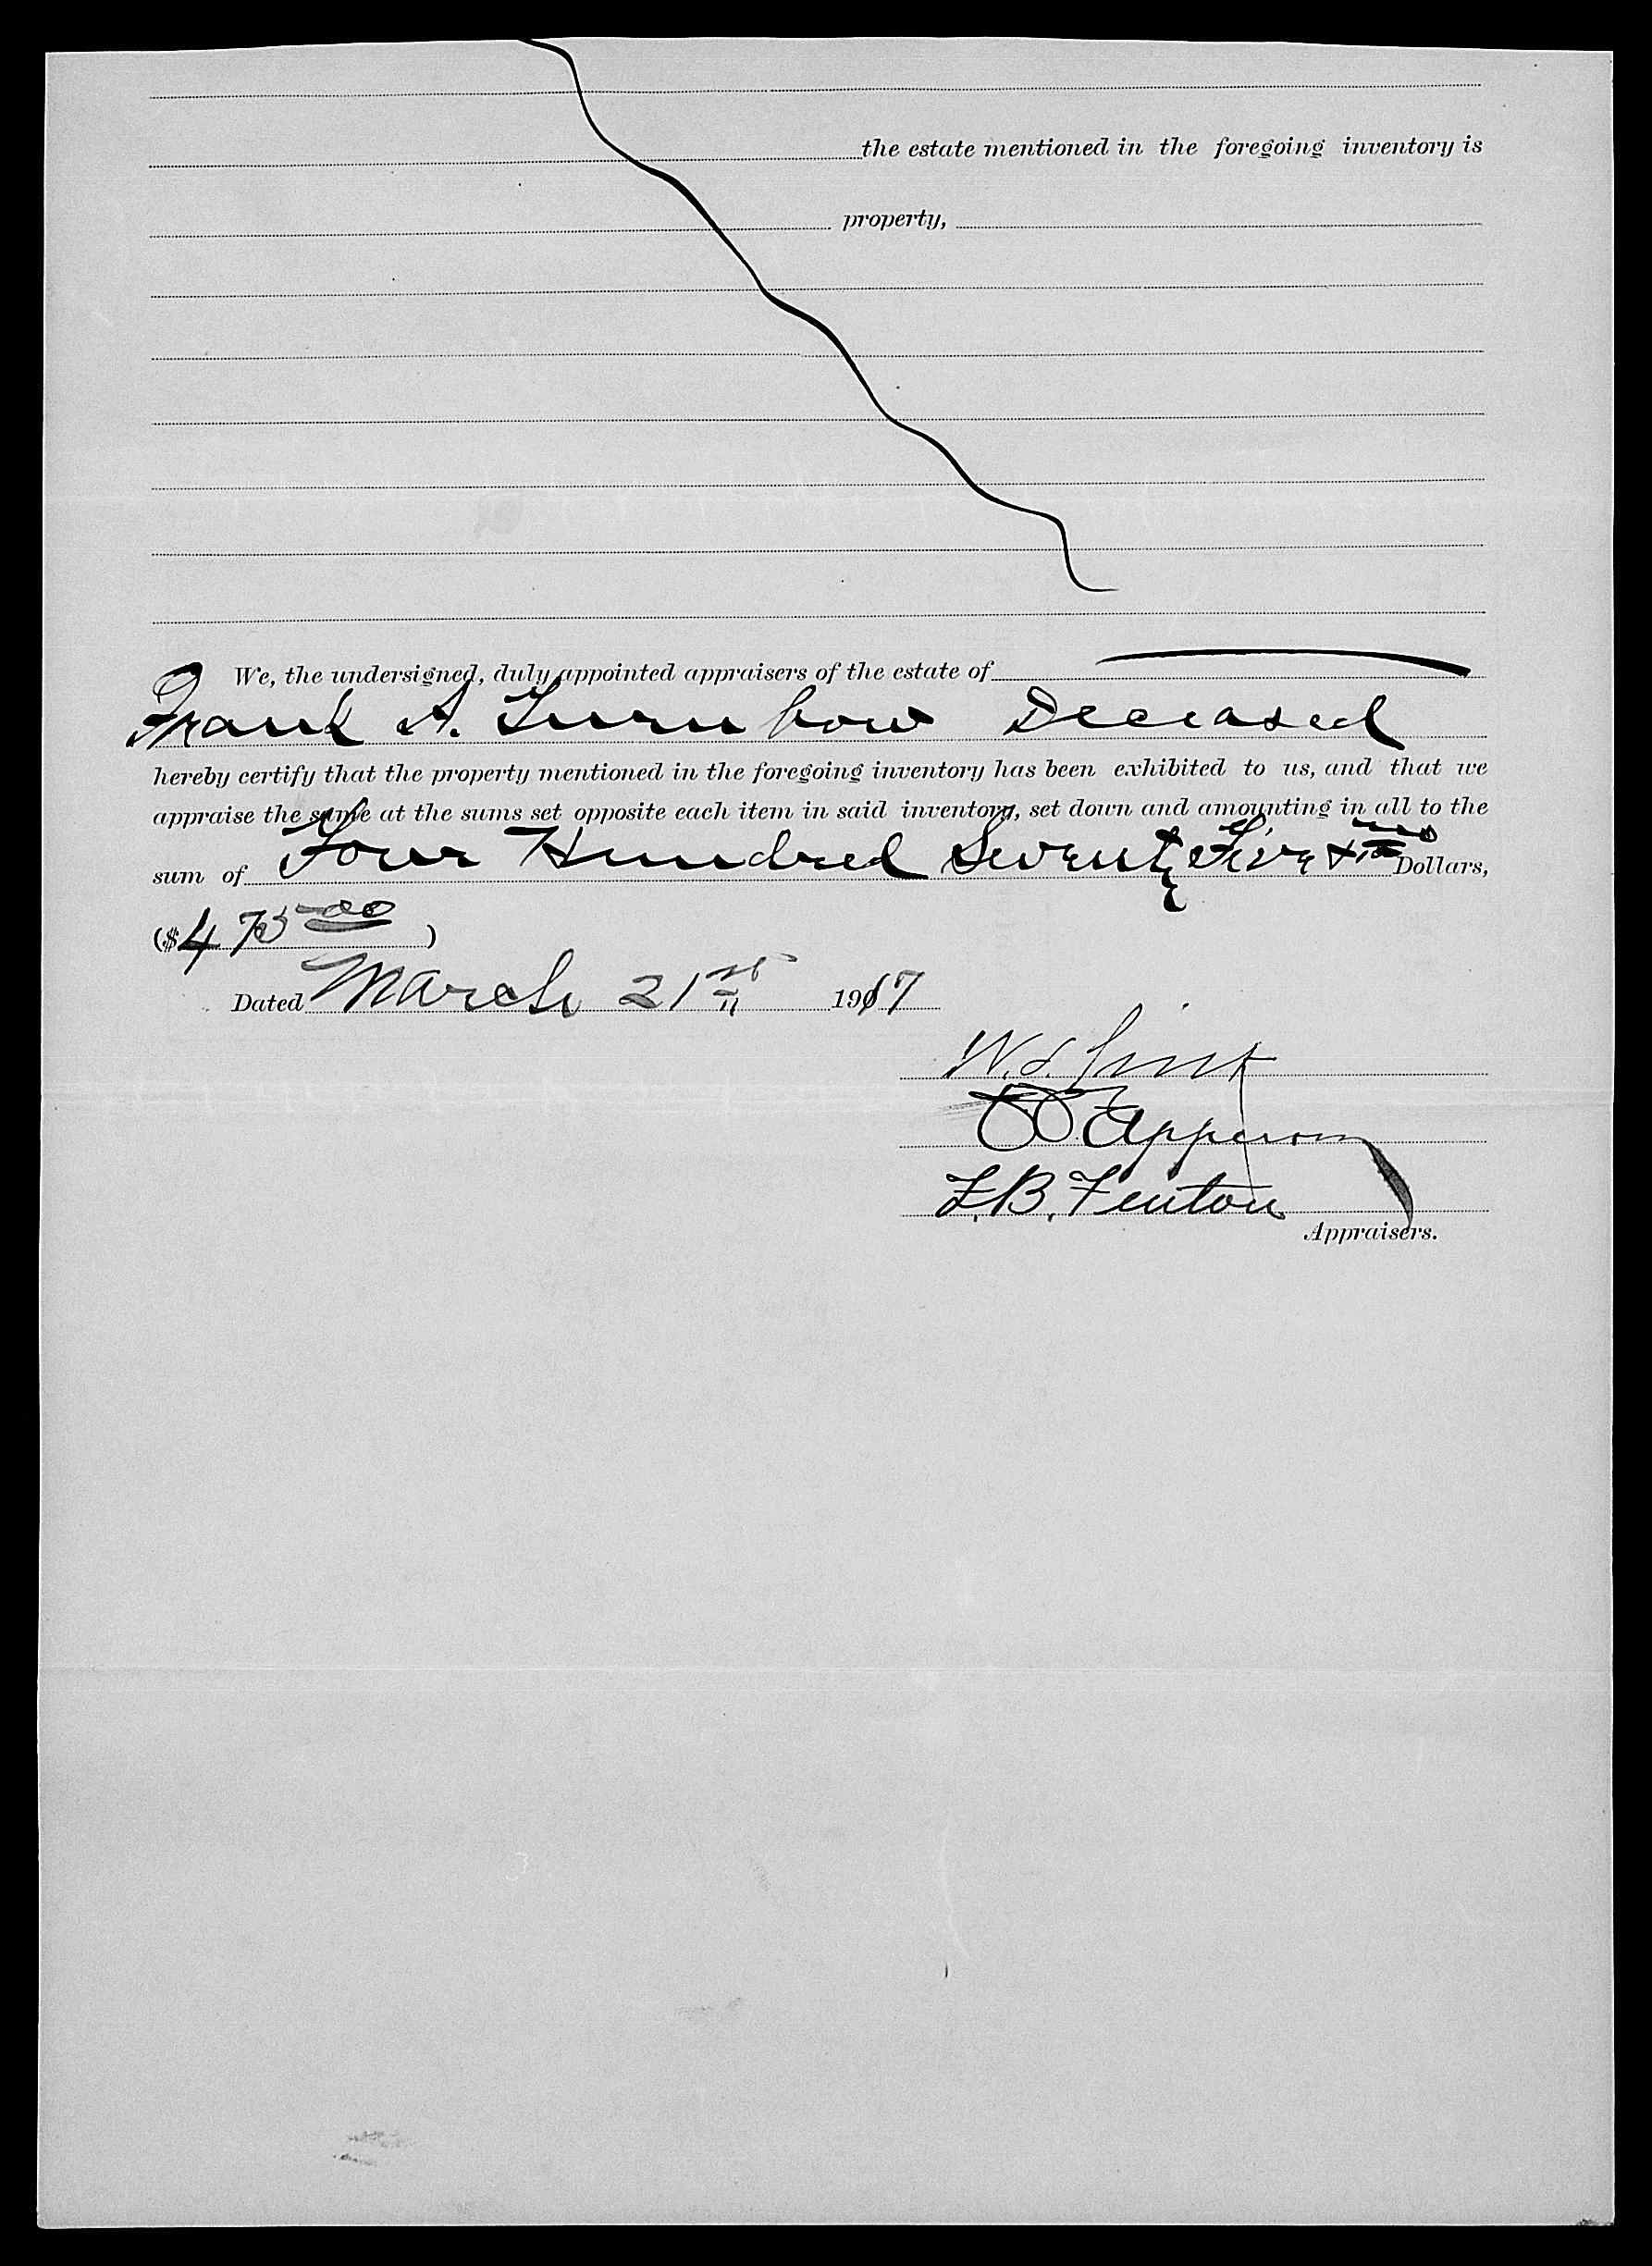 the estate mentioned in the foregoing inventory is
property,
We, the undersigned, duly appointed appraisers of the estate of
Frank A. Turnbow Deceased
hereby certify that the property mentioned in the foregoing inventory has been exhibited to us, and that we
appraise the same at the sums set opposite each item in said inventory, set down and amounting in all to the
sum of Four Hundred Seventy Five & no/100 Dollars,
($475 00)
Dated March 21st 1917
W. S.
Apperson
F. B. Fenton
Appraisers.